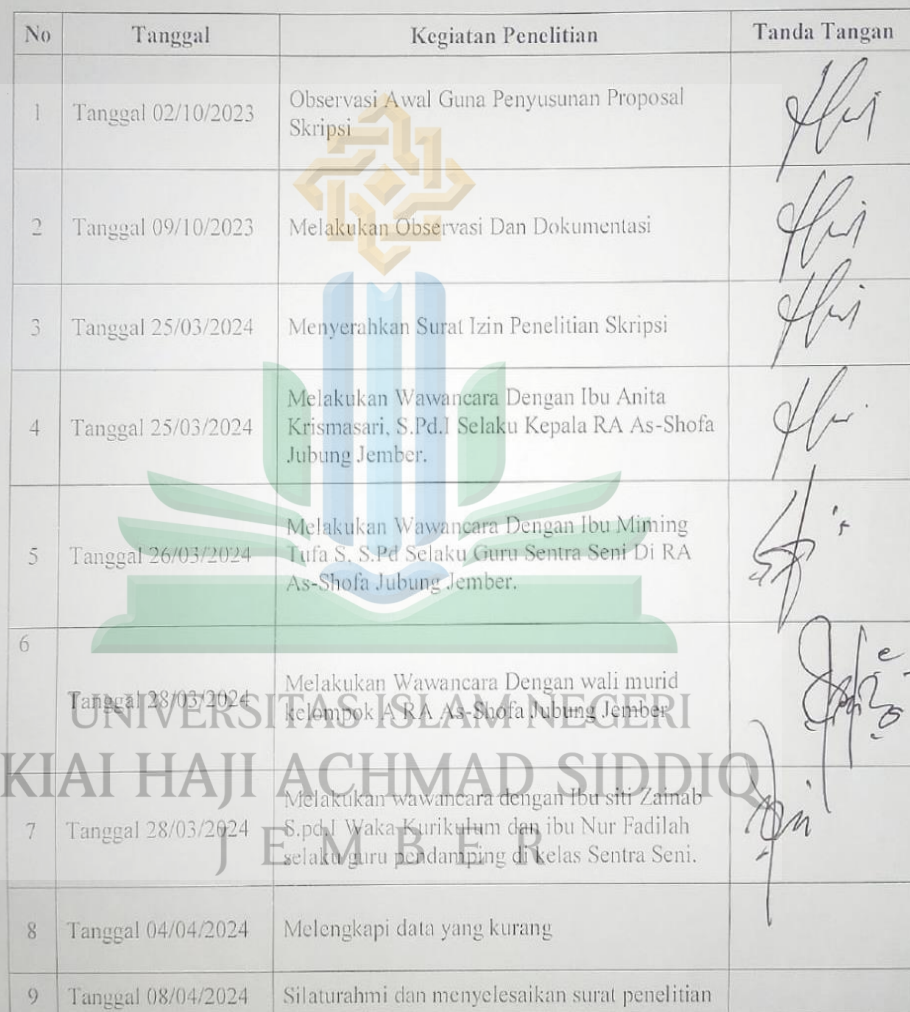 No Tanggal Kegiatan Penelitian Tanda Tangan
1 Tanggal 02/10/2023 Observasi Awal Guna Penyusunan Proposal
Skripsi
2 Tanggal 09/10/2023 Melakukan Observasi Dan Dokumentasi
3 Tanggal 25/03/2024 Menyerahkan Surat Izin Penelitian Skripsi
4 Tanggal 25/03/2024 Melakukan Wawancara Dengan Ibu Anita
Krismasari, S.Pd.I Selaku Kepala RA As-Shofa
Jubung Jember.
5 Tanggal 26/03/2024 Melakukan Wawancara Dengan Ibu Miming
Tufa S, S.Pd Selaku Guru Sentra Seni Di RA
As-Shofa Jubung Jember.
6 Tanggal 28/03/2024 Melakukan Wawancara Dengan wali murid
kelompok A RA As-Shofa Jubung Jember
UNIVERSITAS ISLAM NEGERI
KIAI HAJI ACHMAD SIDDIQ
JEMBER
7 Tanggal 28/03/2024 Melakukan wawancara dengan Ibu siti Zainab
S.pd.I Waka Kurikulum dan ibu Nur Fadilah
selaku guru pendamping di kelas Sentra Seni.
8 Tanggal 04/04/2024 Melengkapi data yang kurang
9 Tanggal 08/04/2024 Silaturahmi dan menyelesaikan surat penelitian